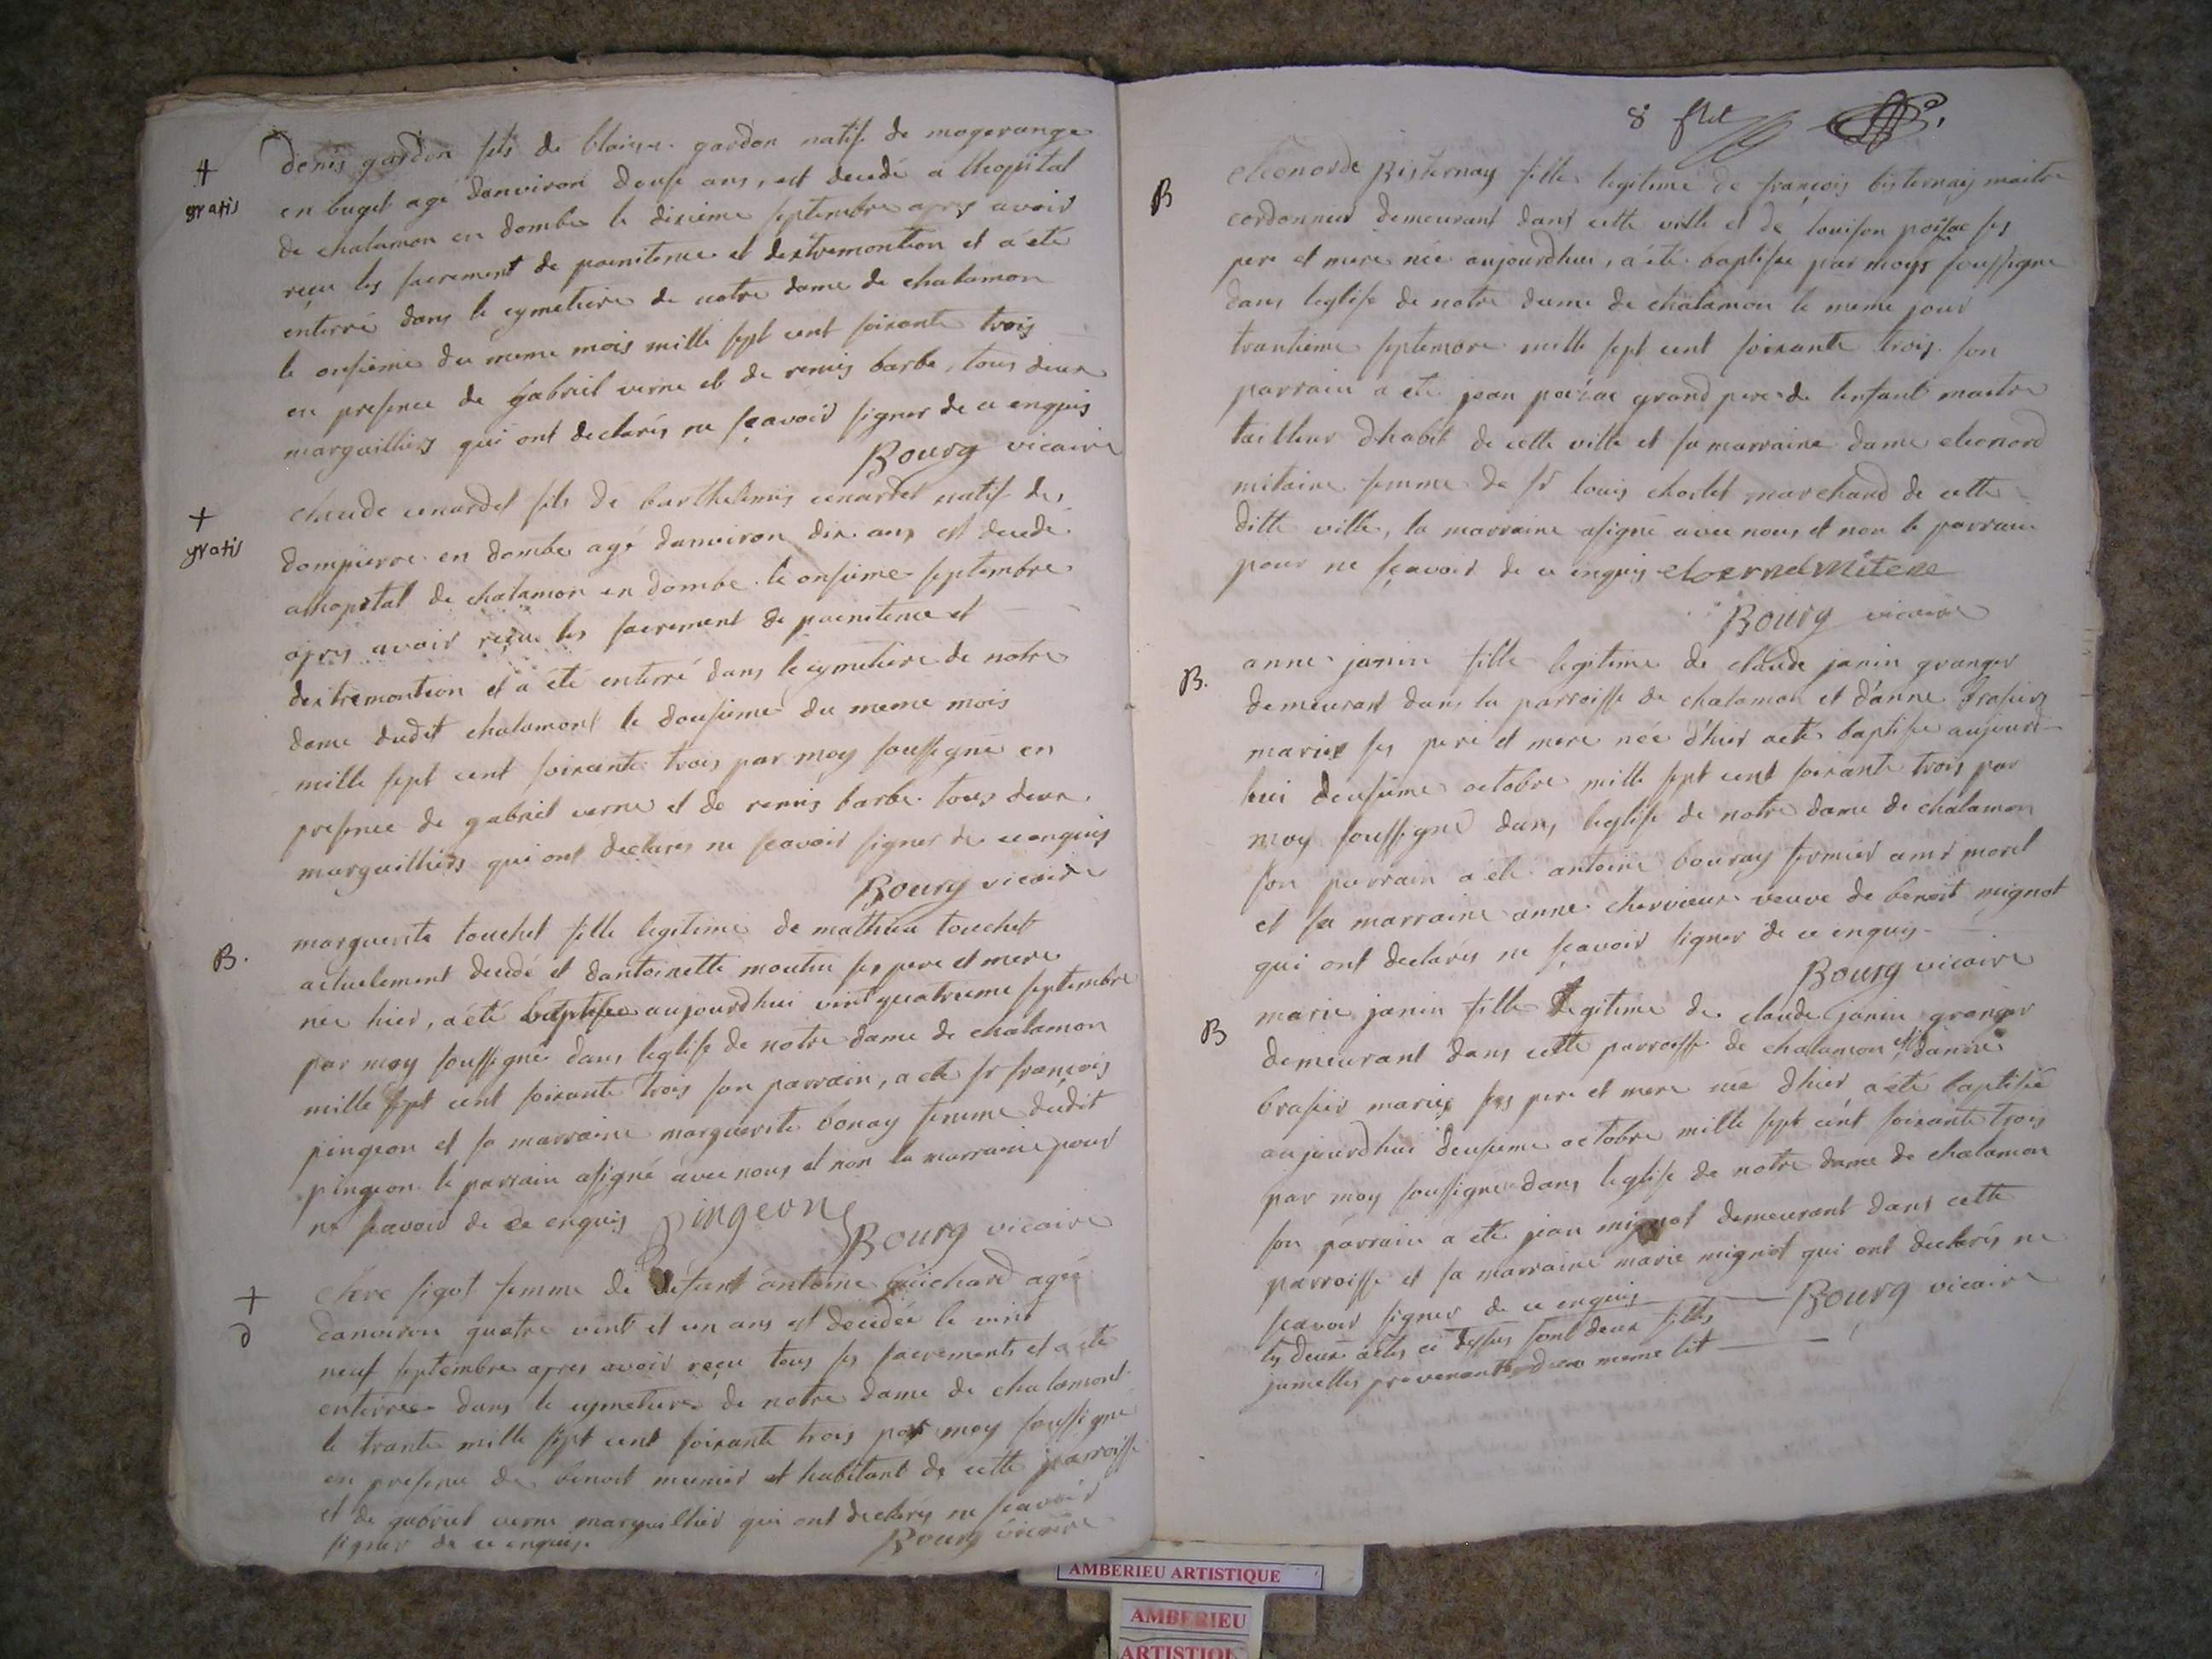 +
gratis
denis gardon fils de blaise gardon natif de mogerange
en buget agé danviron douse ans, est decedé a lhopital
de chalamon en dombe le dixieme septembre apres avoir
reçu les sacrement de poenitence et dextremontion et a été
enterré dans le cymetiere de notre dame de chalamon
le onsieme du meme mois mille sept cent soixante trois
en presence de gabriel verne et de remis barbe, tous deux
marguilliers qui ont declarés ne sçavoir signer de ce enquis
Bourg vicaire
+
gratis
claude cenardet fils de barthelemis cenardet natif de
dompierre en dombe agé danviron dix ans est decedé
a lhopital de chalamon en dombe le onsieme septembre
apres avoir reçu les sacrement de poenitence et
dextremontion et a été enterré dans le cymetiere de notre
dame dudit chalamont le dousieme du meme mois
mille sept cent soixante trois par moy soussigné en
presence de gabriel verne et de remis barbe tous deux
marguilliers qui ont declarés ne sçavoir signer de ce enquis
Bourg vicaire
B.
marguerite touchet fille legitime de mathieu touchet
actuelement decedé et dantoinette moutin ses pere et mere
née hier, a été baptisée aujourdhui vint quatrieme septembre
par moy soussigné dans leglise de notre dame de chalamon
mille sept cent soixante trois son parrain, a ete sr françois
pingeon et sa marraine marguerite bonay femme dudit
pingeon. le parrain asigné avec nous et non la marraine pour
ne scavoir de ce enquis Pingeon
Bourg vicaire
+
d
clere sigot femme de defunt antoine guichard agée
danviron quatre vint et un ans est decedée le vint
neuf septembre apres avoir reçu tous ses sacrements et a ete
enterrée dans le cymetiere de notre dame de chalamont
le trante mille sept cent soixante trois par moy soussigné
en presence de benoit munier et habitant de cette parroisse
et de gabriel verne marguillier qui ont declarés ne scavoir
signer de ce enquis.
Bourg vicaire
8
B
eleonorde Bisternay fille legitime de françois bisternay maitre
cordonnier demeurant dans cette ville et de louison poisac ses
pere et mere née aujourdhui, a été baptisée par moy soussigné
dans leglise de notre dame de chalamon le meme jour
trantieme septembre mille sept cent soixante trois. son
parrain a ete jean poizac grand pere de lenfant maitre
tailleur dhabit de cette ville et sa marraine dame eleonord
mitaine femme de sr louis chorlet marchand de cette
ditte ville, la marraine asigné avec nous et non le parrain
pour ne sçavoir de ce enquis
Bourg vicaire
B.
anne janin fille legitime de claude janin granger
demeurant dans la parroisse de chalamon et d'anne brasier
mariés ses pere et mere née d'hier a été baptisée aujourd-
hui deusieme octobre mille sept cent soixante trois par
moy soussigné dans leglise de notre dame de chalamon
son parrain a ete antoine bouray fermier a mr morel
et sa marraine anne chervieux veuve de benoit mignot
qui ont declarés ne sçavoir signer de ce enquis
Bourg vicaire
B
marie janin fille legitime de claude janin granger
demeurant dans cette parroisse de chalamon et danne
brasier mariés ses pere et mere née dhier a été baptisée
aujourdhui deusieme octobre mille sept cent soixante trois
par moy soussigné dans leglise de notre dame de chalamon
son parrain a ete jean mignot demeurant dans cette
parroisse et sa marraine marie mignot qui ont declarés ne
scavoir signer de ce enquis
Bourg vicaire
les deux actes ci dessus sont deux filles
jumelles provenantes d'un meme lit
AMBERIEU ARTISTIQUE
AMBERIEU
ARTISTIQU